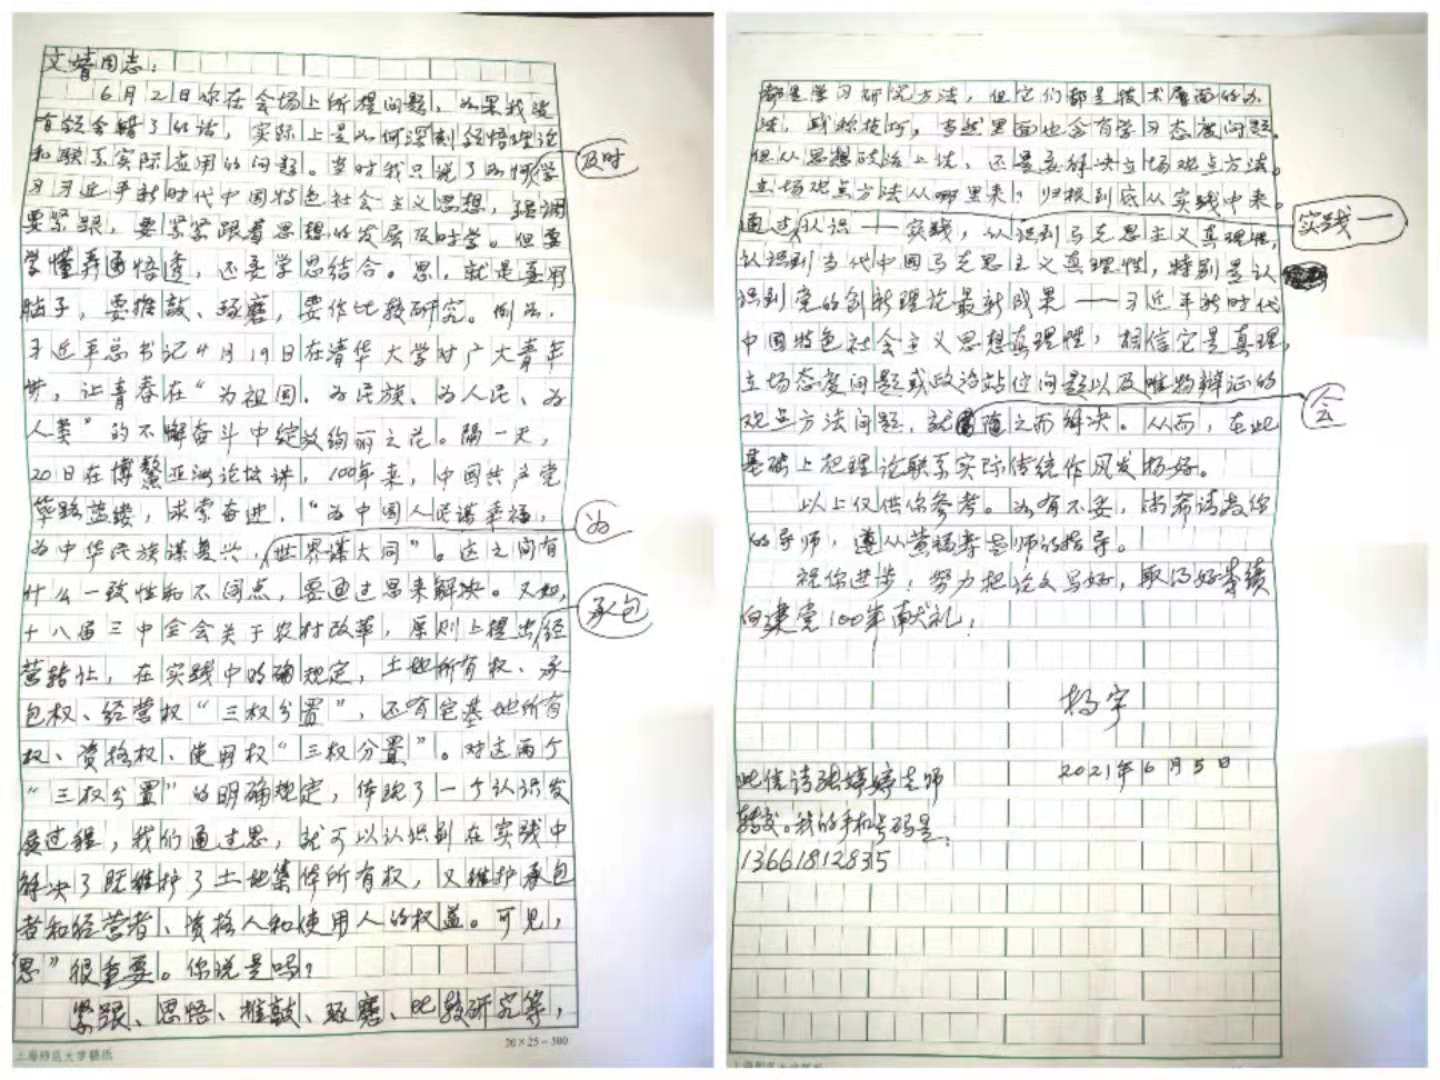 文婧同志：
6月2日你在会场上所提问题，如果我没
有领会错了的话，实际上是如何深刻领悟理论
和联系实际应用的问题。当时我只说了如何学
及时
习习近平新时代中国特色社会主义思想，强调
要紧跟，要紧紧跟着思想的发展及时学。但要
学懂弄通悟透，还要学思结合。思，就是要用
脑子，要推敲、琢磨，要作比较研究。例如，
习近平总书记4月19日在清华大学对广大青年
讲，让青春在“为祖国、为民族、为人民、为
人类”的不懈奋斗中绽放绚丽之花。隔一天，
20日在博鳌亚洲论坛讲，100年来，中国共产党
筚路蓝缕，求索奋进，“为中国人民谋幸福，
为
为中华民族谋复兴，世界谋大同”。这之间有
什么一致性和不同点，要通过思来解决。又如，
承包
十八届三中全会关于农村改革，原则上提出经
营转让，在实践中明确规定，土地所有权、承
包权、经营权“三权分置”，还有宅基地所有
权、资格权、使用权“三权分置”。对这两个
“三权分置”的明确规定，体现了一个认识发
展过程，我们通过思，就可以认识到在实践中
解决了既维护了土地集体所有权，又维护承包
者和经营者、资格人和使用人的权益。可见，
思”很重要。你说是吗？
紧跟、思悟、推敲、琢磨、比较研究等，
上海师范大学稿纸
20×25=500
都是学习研究方法，但它们都是技术层面的办
法，或称技巧，当然里面也会有学习态度问题。
但从思想政治上说，还是要解决立场观点方法。
立场观点方法从哪里来？归根到底从实践中来。
实践一
通过认识一实践，认识到马克思主义真理性，
认识到当代中国马克思主义真理性，特别是认
识到党的创新理论最新成果——习近平新时代
中国特色社会主义思想真理性，相信它是真理，
立场态度问题或政治站位问题以及唯物辩证的
会
观点方法问题，就随之而解决。从而，在此
基础上把理论联系实际传统作风发扬好。
以上仅供你参考。如有不妥，尚希请教你
的导师，遵从黄福寿老师的指导。
祝你进步，努力把论文写好，取得好成绩
向建党100年献礼！
杨宇
2021年6月5日
此信请张婷婷老师
转交。我的手机号码是：
13661812835